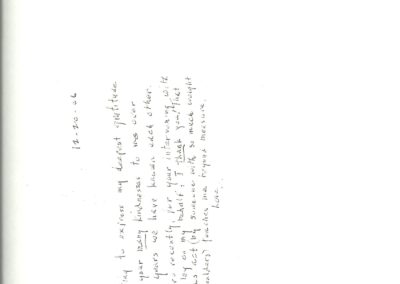 12-20-06
to express my deepest gratitude
your many kindnesses to me over
years we have known each other.
recently for your intervening with
on my behalf; I thank you, that
act (by someone with so much weight
) touches me beyond measure.